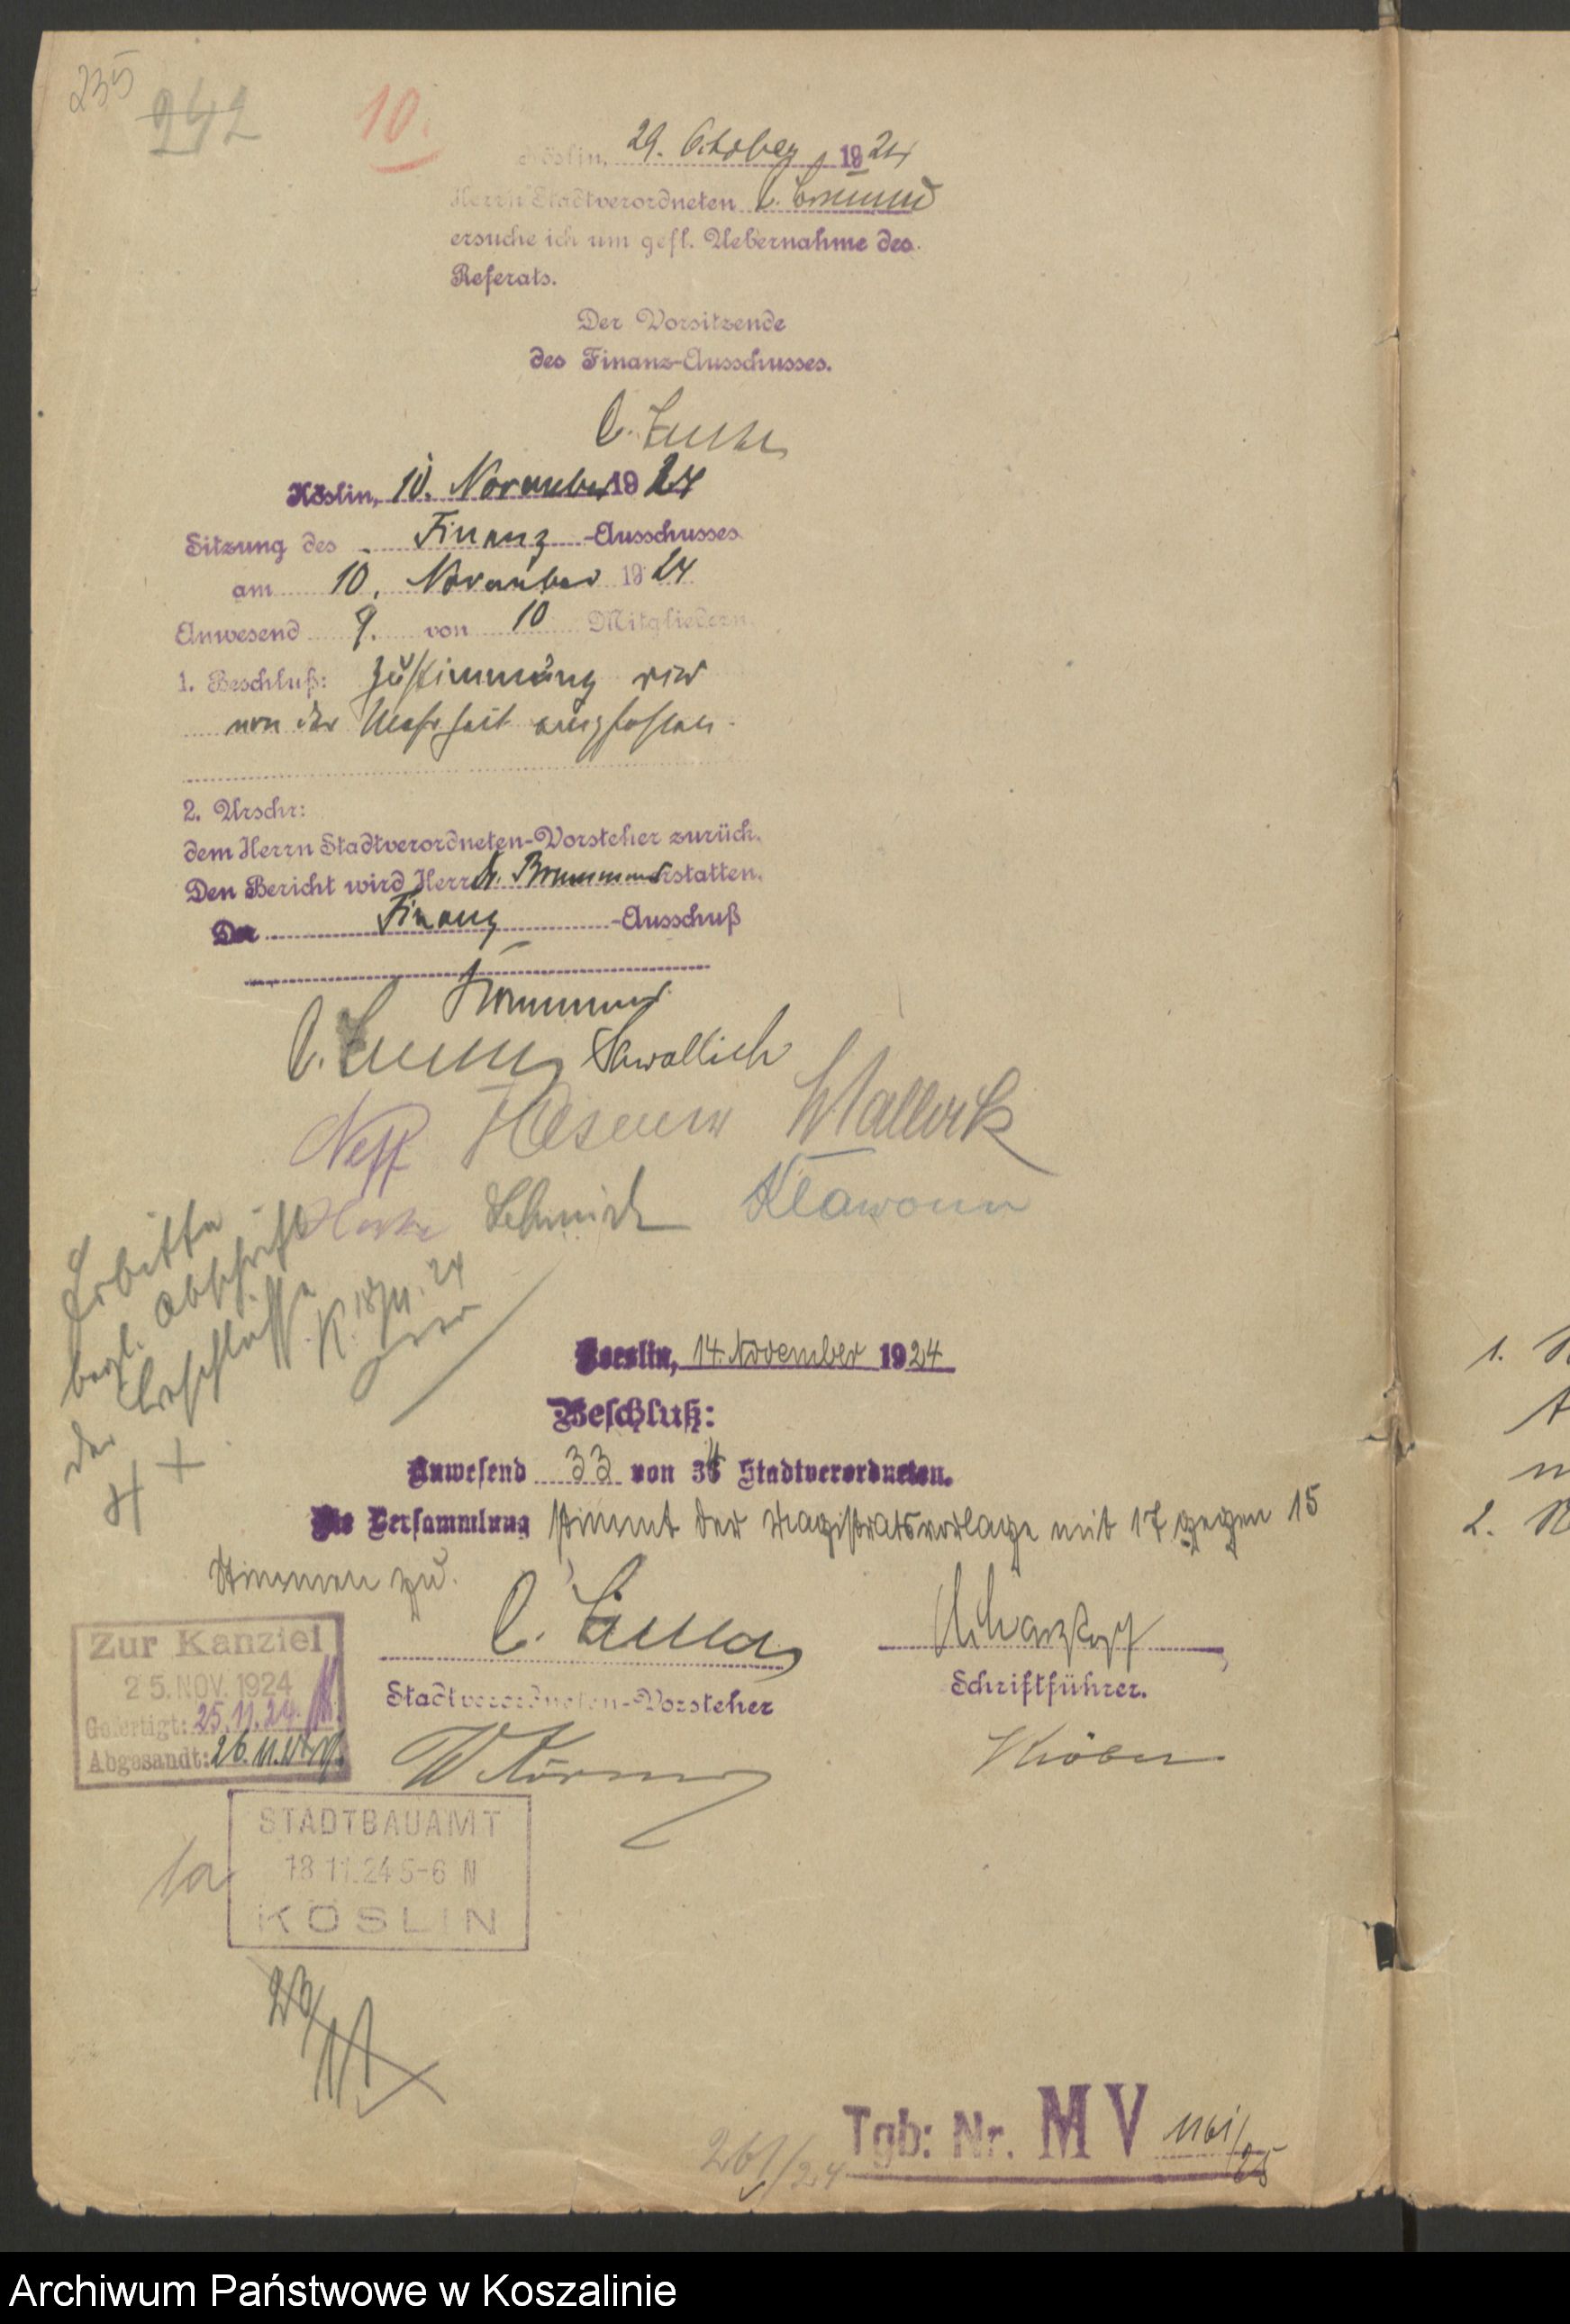 235
242
10.
Köslin, 29. October 1924
Herrn Stadtverordneten
ersuche ich um gefl. Uebernahme des
Referats.
Der Vorsitzende
des Finanz-Ausschusses.
Köslin, 10. November 1924
Sitzung des Finanz-Ausschusses
am 10. November 1924
Anwesend 9. von 10 Mitgliedern.
1. Beschluß: Zustimmung wird
von der Mehrheit empfohlen.
2. Urschr:
dem Herrn Stadtverordneten-Vorsteher zurück.
Den Bericht wird Herr erstatten.
Der Finanz-Ausschuß
Sawallich
Neff Wallock
Schmidt Klawonn
Erbitte
begl. Abschrift
der Beschlüsse
K. 18/11.24
Koeslin, 14. November 1924
Beschluß:
Anwesend 33 von 36 Stadtverordneten.
Die Versammlung stimmt der Magistratsvorlage mit 17 gegen 15
Stimmen zu.
Schwarzkopf
Stadtverordneten-Vorsteher
Schriftführer.
Zur Kanzlei
25. NOV. 1924
Gefertigt: 25.11.24.
Abgesandt: 26.11.24
STADTBAUAMT
18 11.24 5-6 N
KÖSLIN
1a
Tgb: Nr. M V 1161/25
261/24
1.
2.
Archiwum Państwowe w Koszalinie